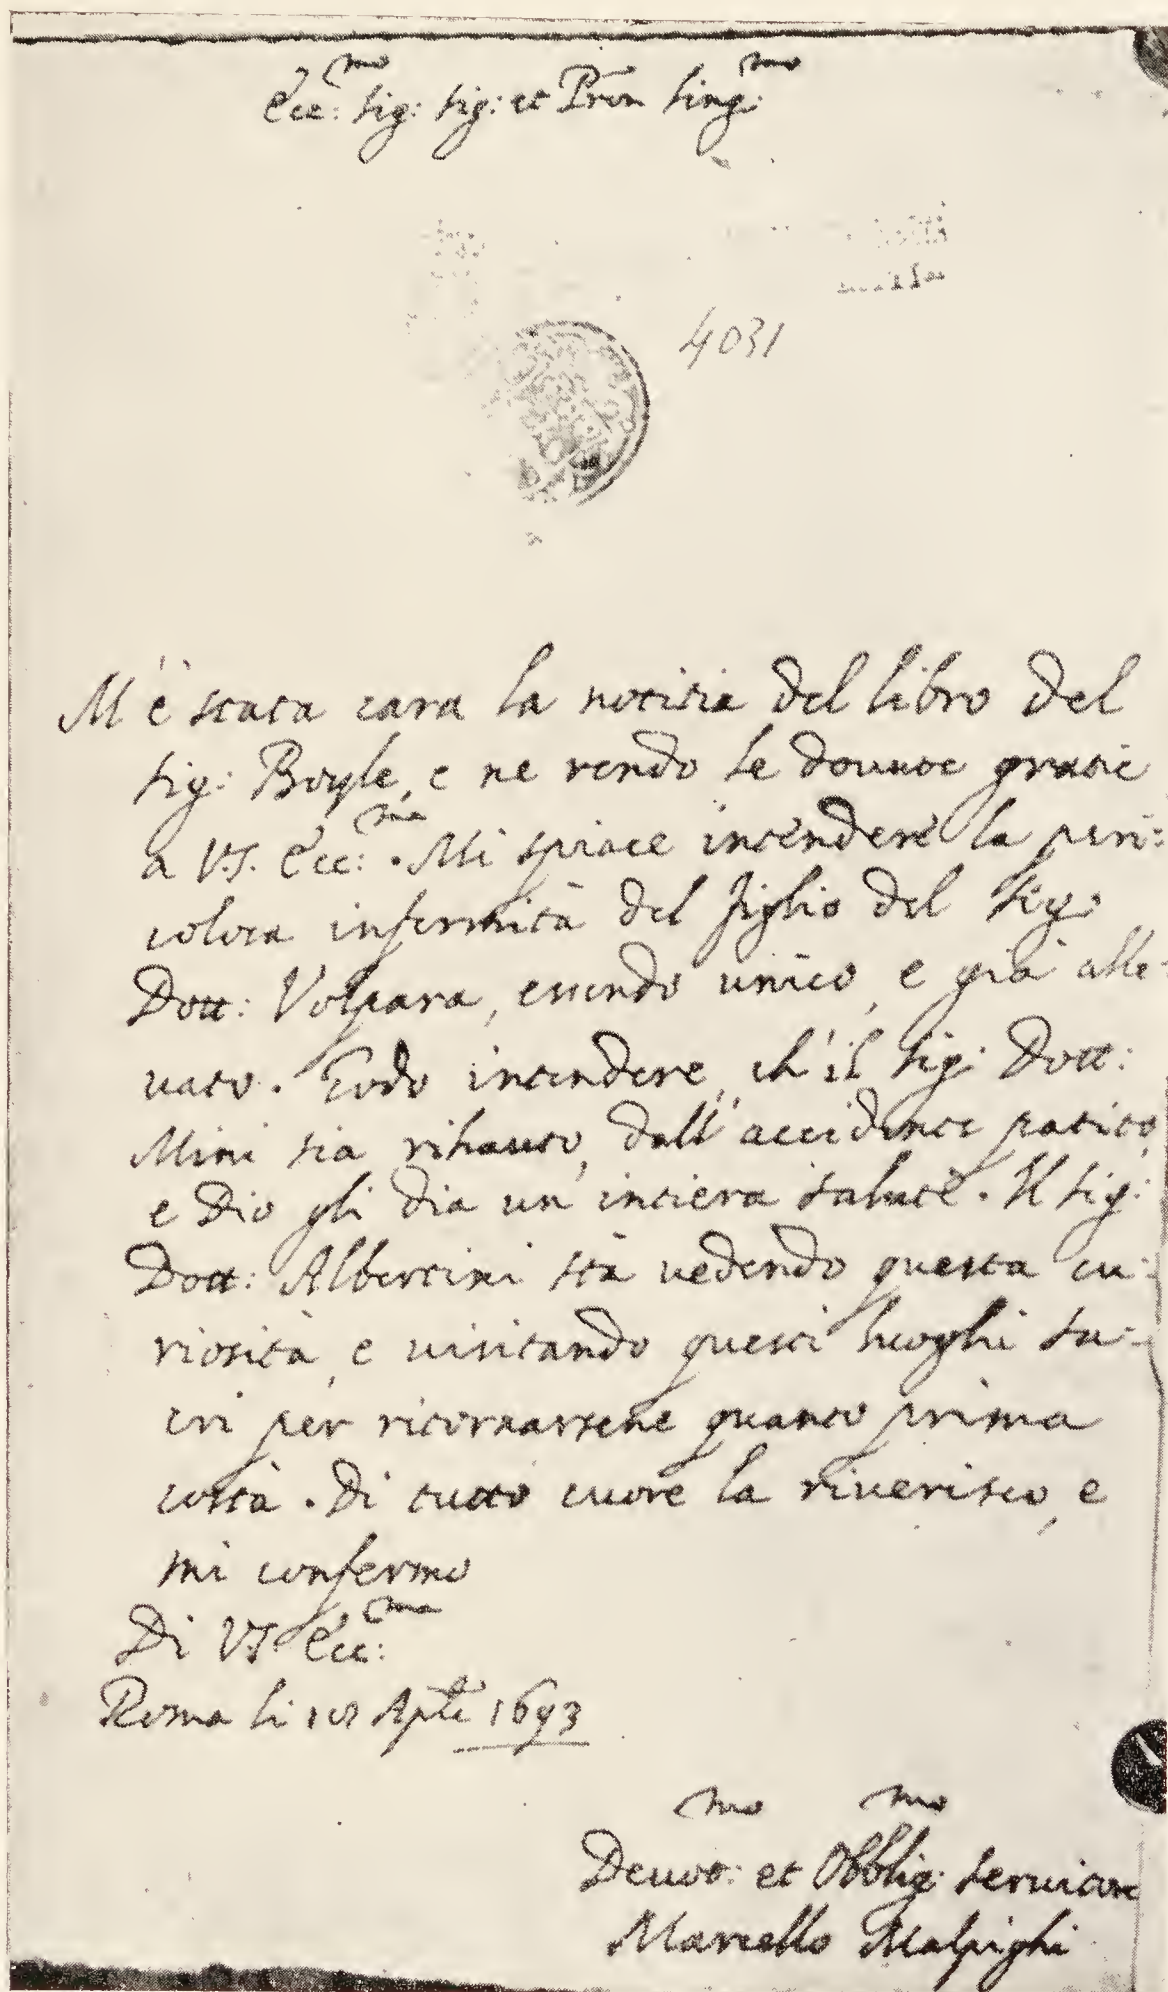 Ecc:mo Sig: Sig: et Pron Sing:mo
4031
M'è stata cara la notitia del libro del
Sig: Boyle, e ne rendo le douute gratie
a V.S. Ecc:ma. Mi spiace intendere la peri:
colosa infermità del figlio del Sig:
Dott: Volpara, essendo unico, e già alle-
uato. Godo intendere, ch'il Sig: Dott:
Mini sia rihauuto, dall'accidente patito,
e Dio gli dia un'intiera salute. Il Sig:
Dott: Albertini stà uedendo questa cu:
riosità, e uisitando questi luoghi sa:
cri per ritornarsene quanto prima
costà. Di tutto cuore la riuerisco, e
mi confermo
Di V.S. Ecc:ma
Roma li Aple 1693
Deuot:mo et Obblig:mo Seruitore
Marcello Malpighi